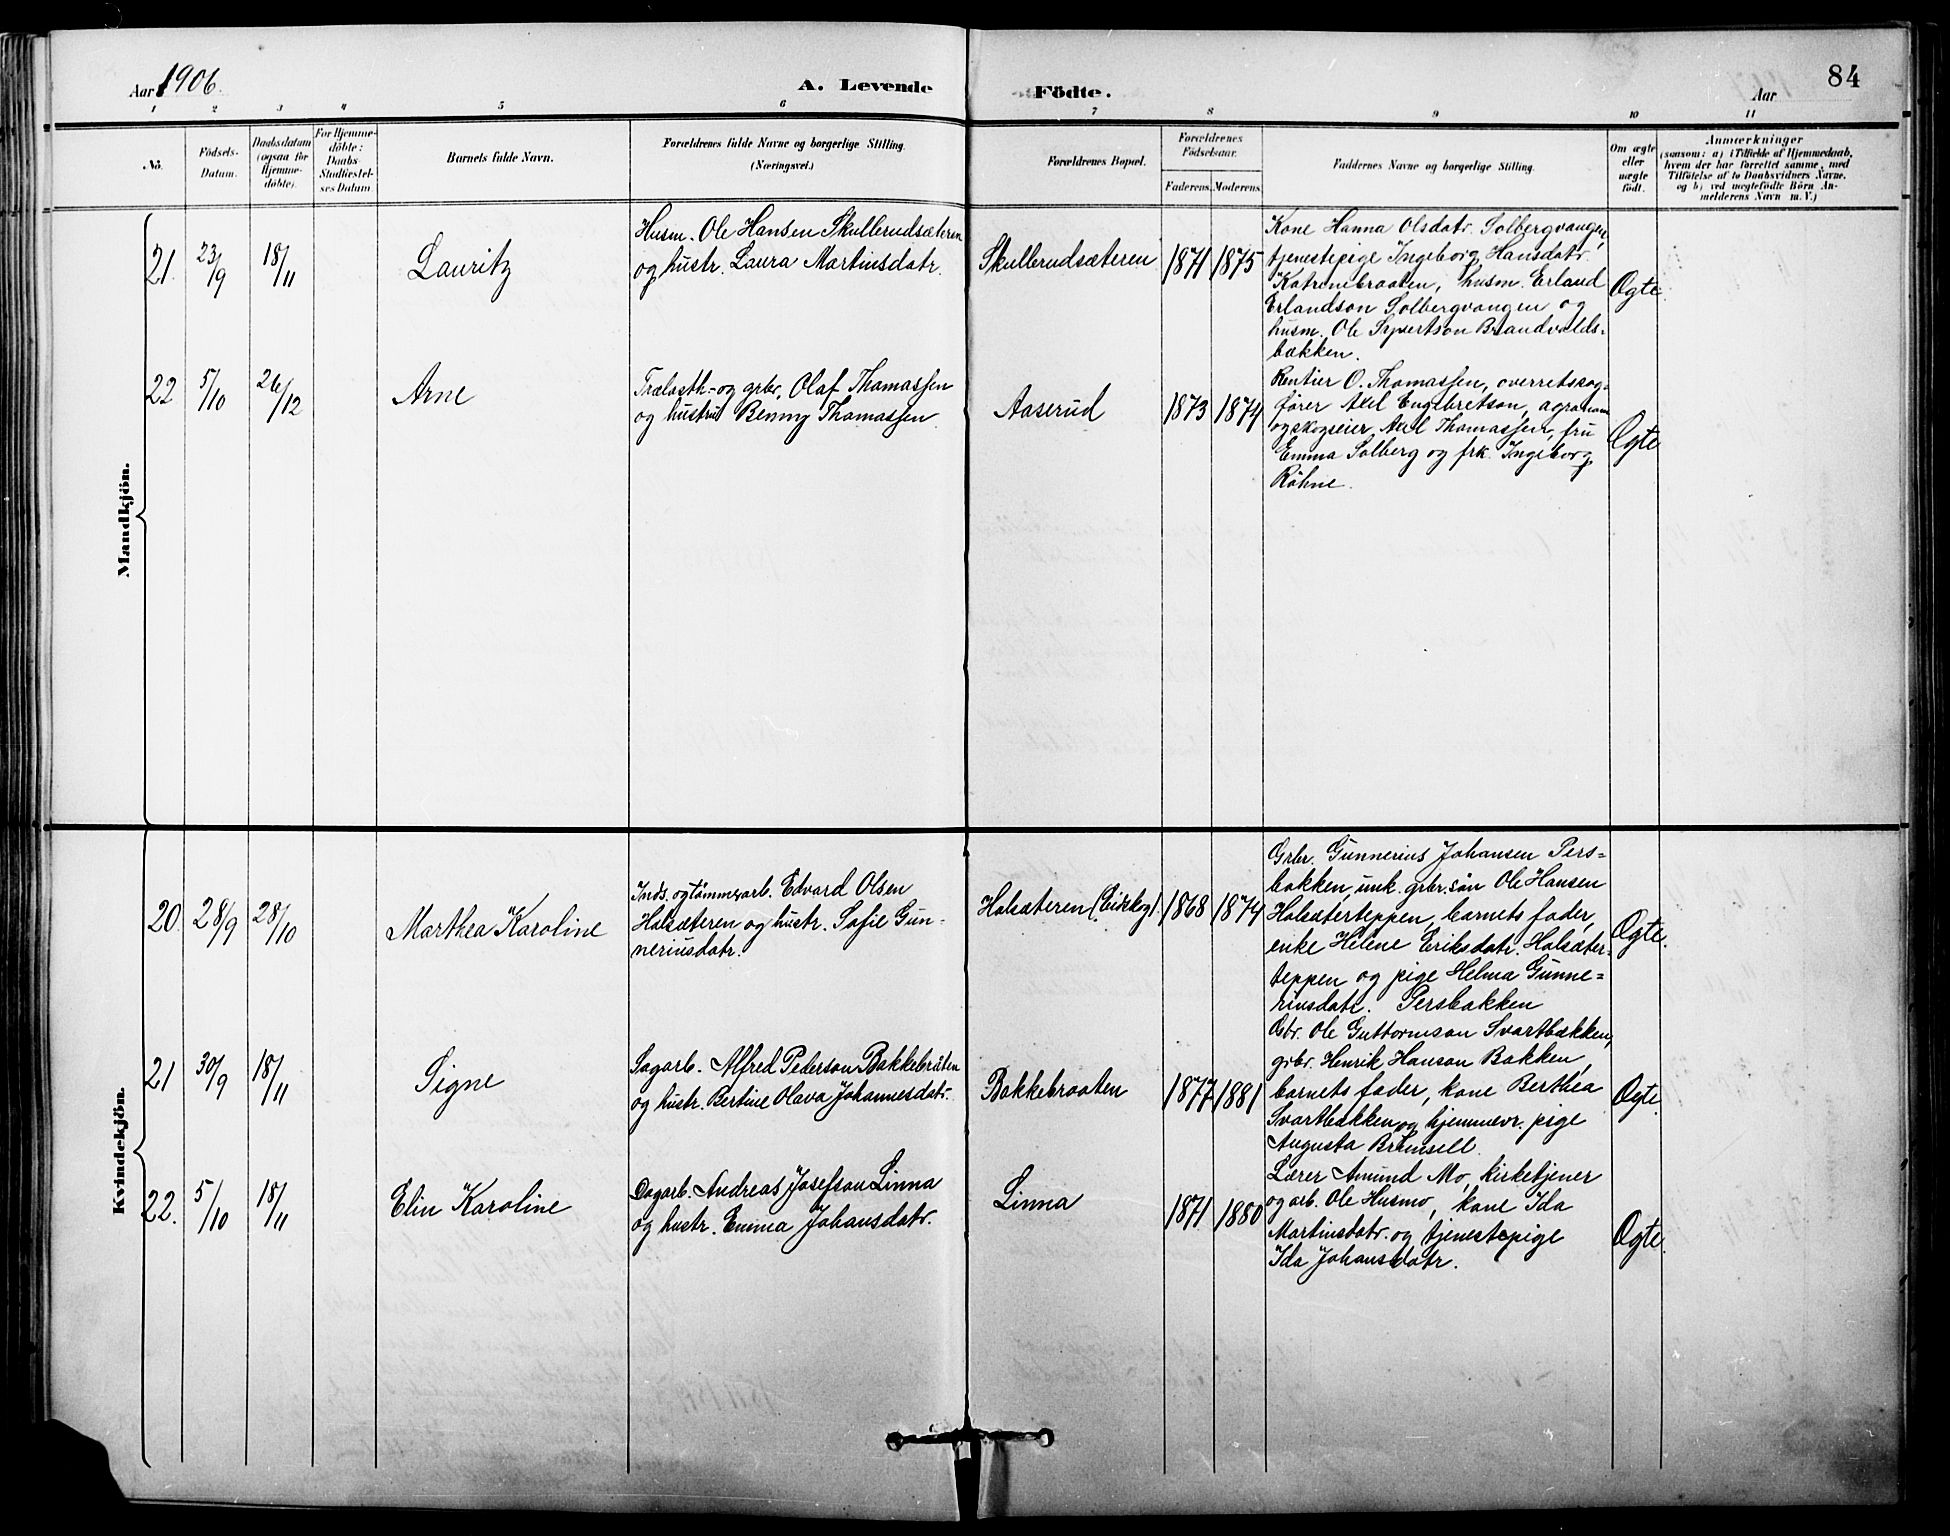 Aar 1906.
A. Levende
Födte.
Aar
84
1 2 3 4 5 6 7 8 9 10 11
No.
Födsels-
Datum.
Daabsdatum
(ogsaa for
Hjemme-
döbte).
For Hjemme-
döbte:
Daabs-
Stadfæstel-
ses Datum.
Barnets fulde Navn.
Forældrenes fulde Navne og borgerlige Stilling.
(Næringsvei.)
Forældrenes Bopæl.
Forældrenes
Födselsaar.
Faderens. Moderens.
Faddernes Navne og borgerlige Stilling.
Om ægte
eller
uægte
födt.
Anmærkninger
(saasom: a) i Tilfælde af Hjemmedaab,
hvem der har forrettet samme, med
Tilföielse af to Daabsvidners Navne,
og b) ved uægtefödte Börn An-
melderens Navn m. V.)
Mandkjön.
21. 23/9 18/11
Lauritz
Husm. Ole Hansen Skullerudsæteren
og hustr. Laura Martinsdatr.
Skullerudsæteren
1871 1875
Kone Hanna Olsdatr. Solbergvangen,
tjenestepige Ingeborg Hansdatr.
Katrinebraaten, husm. Erland
Erlandson Solbergvangen og
husm. Ole Syvertson Brandvolds-
bækken.
Ægte.
22 5/10 26/12
Arne
Trælasth.- og grbr. Olaf Thomassen
og hustru Benny Thomassen.
Aaserud
1873 1874
Rentier O. Thomassen, overretssag-
fører Axel Engebretson, agronom
og skogseier Axel Thomassen, fru
Emma Solberg og frk. Ingeborg
Röhne.
Ægte
Kvindekjön.
20. 28/9 28/10
Marthea Karoline
Inds. og tömmerarb. Edvard Olsen
Holsæteren og hustr. Sofie Gun-
neriusdatr.
Holsæteren (Eidskog).
1868 1874
Grbr. Gunnerius Johansen Pers-
bakken, unk. grbr.sön Ole Hansen
Holsæterteppen, barnets fader,
enke Helene Eriksdatr. Holsæter-
teppen og pige Helma Gunne-
riusdatr. Persbakken
Ægte.
21 30/9 18/11
Signe
Sagarb. Alfred Pederson Bakkebråten
og hustr. Bertine Olava Johannesdatr.
Bakkebraaten
1877 1881
Gbr. Ole Guttormson Svartbækken,
grbr. Henrik Hanson Bakken,
barnets fader, kone Berthea
Svartbækken og hjemmevr. pige
Augusta
Ægte.
22. 5/10 18/11
Elin Karoline
Dagarb. Andreas Josefson Linna
og hustr. Emma Johansdatr.
Linna
1871 1880
Lærer Amund Mo, kirketjener
og arb. Ole Husmo, kone Ida
Martinsdatr. og tjenestepige
Ida Johansdatr.
Ægte.